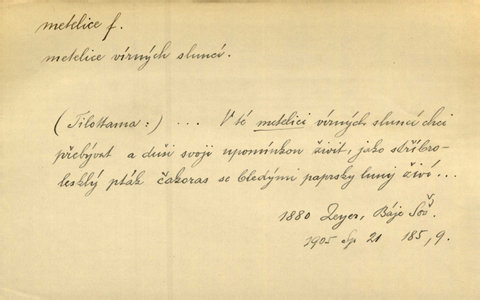 metelice f.
metelice vírných sluncí.
(Tilottama:) ... V té metelici vírných sluncí chci
přebývat a duši svoji upomínkou živit, jako stříbro-
lesklý pták čakoras se bledými paprsky luny živí...
1880 Zeyer, Báje Šoš.
1905 Sp 21 185, 9.